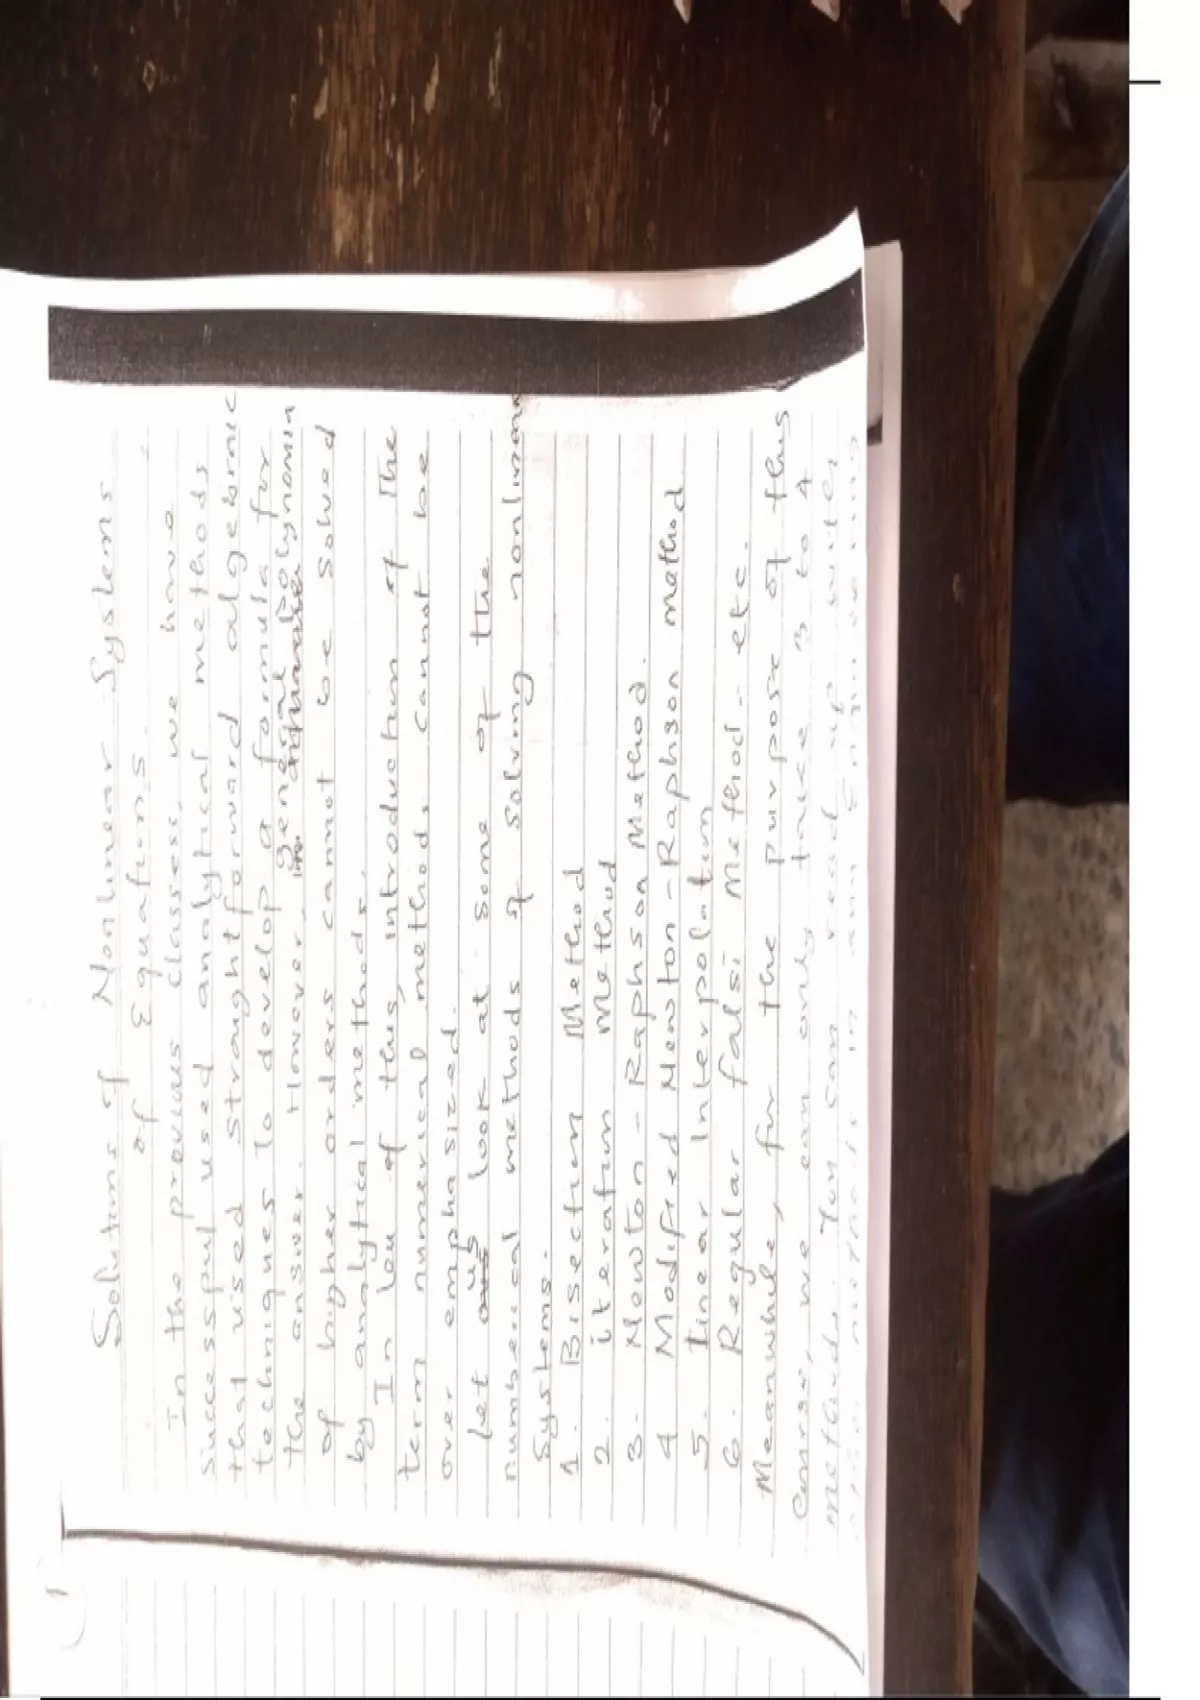 1
Solutions of Nonlinear Systems
of Equations.
In the previous classes, we have
successful used analytical methods
that used straightforward algebraic
techniques to develop a formula for
the answer. However, in general polynomia
of higher orders cannot be solved
by analytical methods.
In leu of this, introduction of the
term numerical methods cannot be
over emphasized.
Let us look at some of the
numberical methods of solving nonlinear
Systems.
1. Bisection Method
2. iteration method
3. Newton-Raphson Method.
4 Modified Newton-Raphson method
5. Linear Interpolation
6. Regular falsi Method. etc.
Meanwhile, for the purpose of this
Course, we can only take 3 to 4
methods. You can read up
methods in any